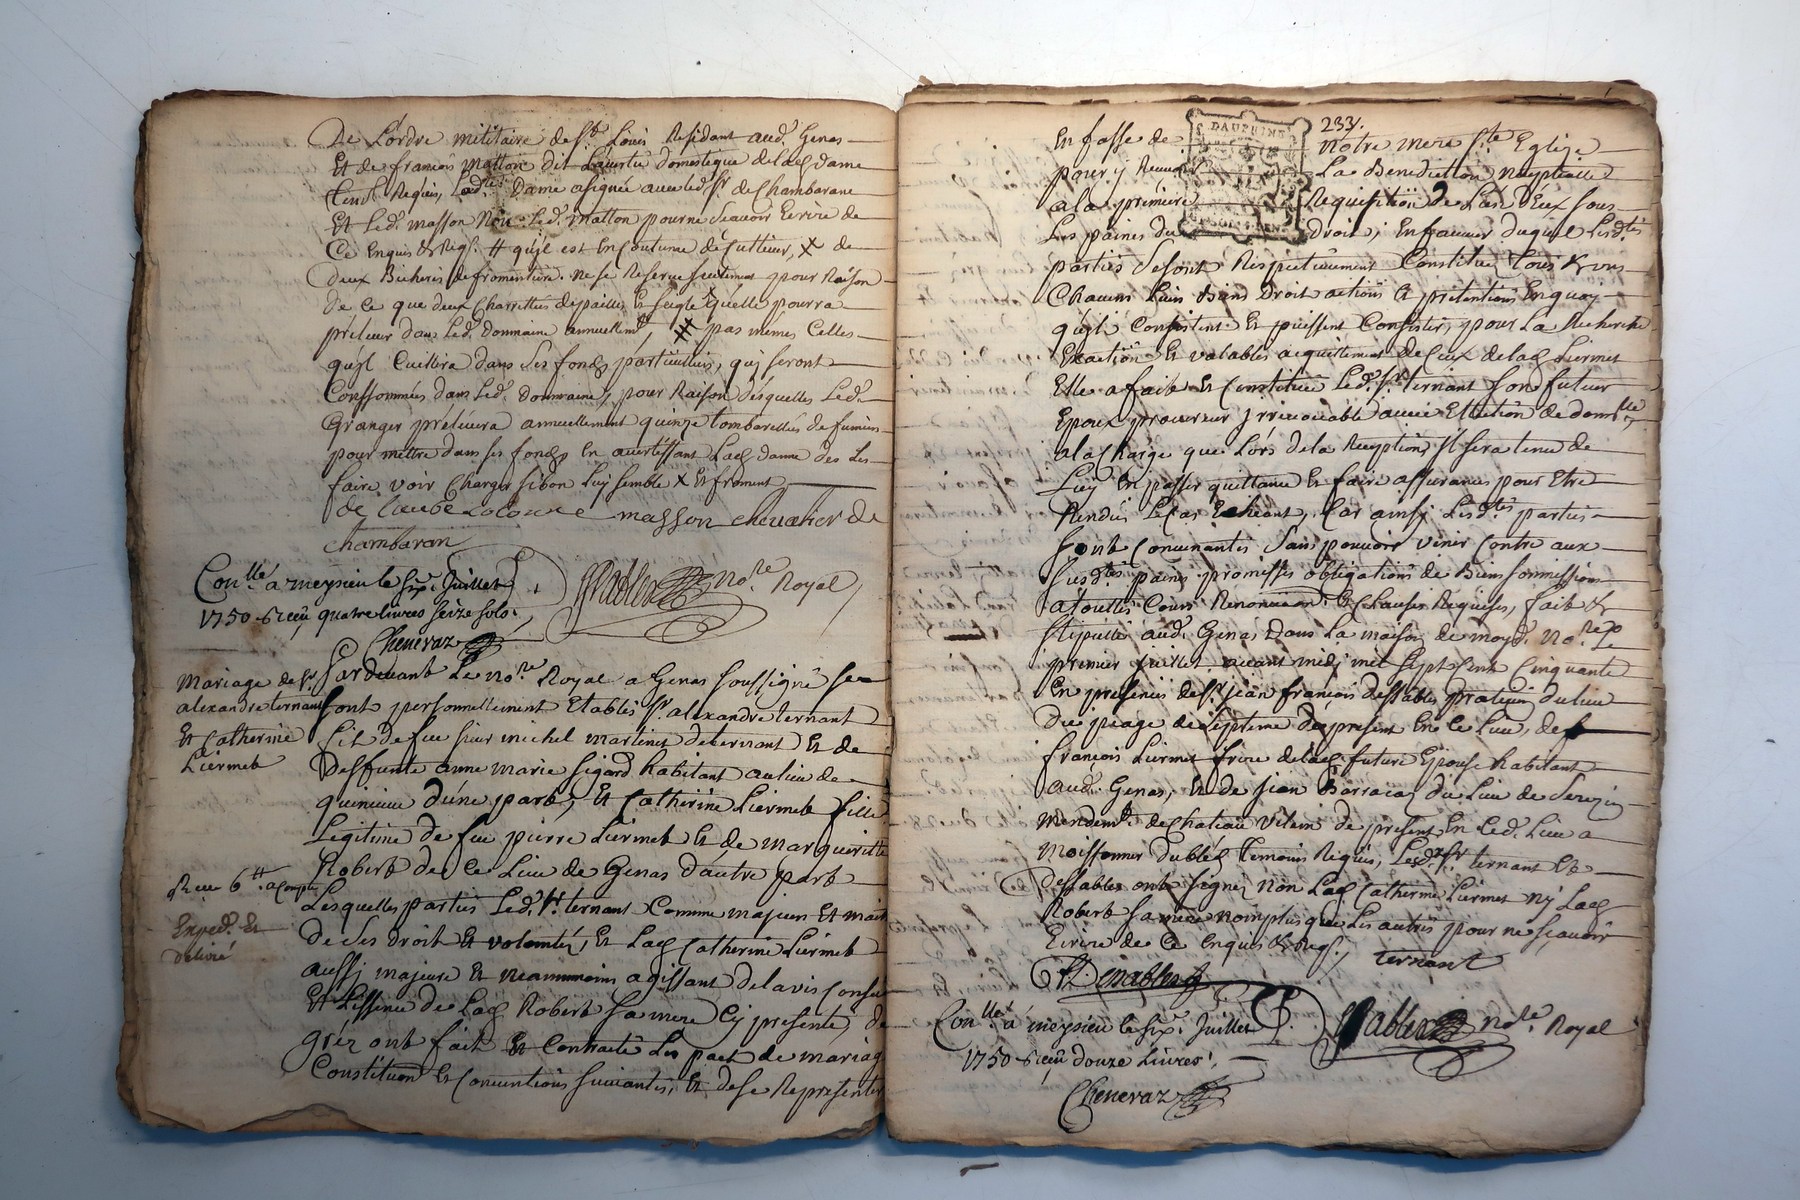 De L'ordre militaire de St Louis Residant aud. Genas
Et de francois Matton dit domestique delad dame
Tem. Requis, Ladte Dame asignée avec led Sr de Chambarane
Et Led. masson Non Led. Matton pour ne Scavoir Ecrire de
Ce Enquis & Reqs. # qu'jl est En Coutume de Cultiver, x de
deux Bicherés de fromentiere. ne se Reserve seulement pour Raison
De ce que deux charrettes de pailles de seigle quelle pourra
prélever dans Led. Dommaine annuellemt, # pas mêmes Celles
qu'jl Cuillira dans Les fonds particuliers, qui seront
Conssommées dans Led. Dommaine, pour Raison désquelles Led.
Granger prélevera annuellement quinze tombarellés de fumier
pour mettre dans ses fonds En avertissant Lad dame des Les
faire voir Charger si bon Luy semble x Et froment
de Laube Masson chevalier de
chambaran
Conllé a meysieu le six. Juillet
1750 Reçu quatre livres seize sols.
Cheneraz
nore Royal
Mariage de Sr
alexandre ternant
Et Catherine
Liermet
Reçu 6 tt a compte
Exped. Et
delivré
Pardevant Le nore Royal a Genas soussigné se
sont personnellement Etablis Sr alexandre ternant
fils de feu sieur michel martinet de ternant Et de
Deffunte anne marie sigard habitant au lieu de
d'une part, Et Catherine Liermet fille
Legitime de feu pierre Liermet Et de margueritte
Robert de ce Lieu de Genas d'autre part
Lesquelles parties Led. Sr ternant Comme majeur Et mait
de Ses droit Et volontés, Et Lad Catherine Liermet
aussj majeure Et neanmoins agissant de l'avis Conse
Et de Lad Robert sa mere Cy presente, de
gréz ont fait Et Contracté Les pact de mariag
Constitution Et Conventions suivantes, Et de se Representer
233.
En fasse de notre mere Ste Eglize
pour y La Benediction nuptialle
a la premiere Requisition de L'un D'eux sous
Les paines du Droit, En faveur duquel Lesdtés
parties se sont Respectivement Constitués tous &
Chacuns Leurs Biens Droit actions & prétentions En quoy
qu'jls Consistent Et puissent Consister, pour La Recherche
Exaction Et valables acquittement de Ceux de lad Liermet
Elle a fait Et Constitué Led. Sr ternant son futur
Epoux procureur jrrevocable avec Ellection de domlle,
a la Charge que Lors de la Reception jl sera tenu de
Luy En passer quittance Et faire assurances pour Etre
Rendus Le Cas Echeant, Car ainsj Lesdtés parties
sont Convenantes sans pouvoir venir Contre aux
susdtés paines promisses obligations de Biens sommissions
a touttes Cours Renonciaon & Clauses Requises, fait &
stipullé aud. Genas Dans La maison de moyd. nore Le
premier juillet avant midj mil sept Cent Cinquante
En presences de Sr jean françois dessables praticien du lieu
Du peage de septeme de present En ce Lieu, de
françois Liermet frere de lad future Epouse habitant
aud. Genas, Et de jean Barracaz du Lieu de Serezin
Mandemt de chateau vilain de present En Led. Lieu a
moissonner du bled temoins Requis, Lesd. Sr ternant Et
dessables ont signez non Lad Catherine Liermet ny Lad
Robert sa mere non plus que Les autres pour ne sçavoir
Ecrire de Ce Enquis & Reqs.
ternant
Conllé a meysieu le six. Juillet
1750 Reçu douze Livres.
nore Royal
Cheneraz